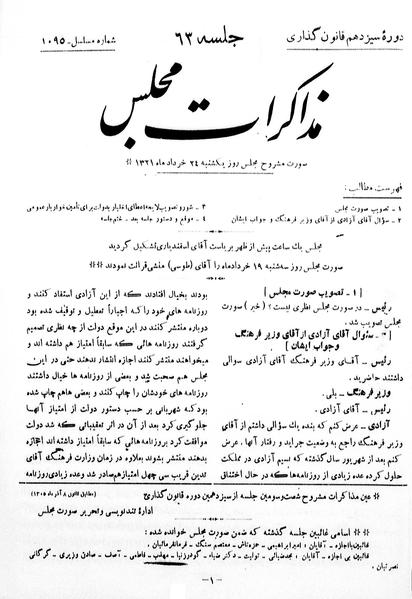 دورهٔ سیزدهم قانون گذاری
جلسه ۶۳
شماره مسلسل - ۱۰۹۵
مذاکرات مجلس
صورت مشروح مجلس روز یکشنبه ۲۴ خرداد ماه ۱۳۲۱
فهرست مطالب:
۱ - تصویب صورت مجلس
۲ - سؤال آقای آزادی از آقای وزیر فرهنگ و جواب ایشان
۳ - شور و تصویب لایحه اعطای اختیار بدولت برای تأمین خواربار عمومی
۴ - موقع و دستور جلسه بعد - ختم جلسه
مجلس یک ساعت پیش از ظهر بریاست آقای اسفندیاری تشکیل گردید
صورت مجلس روز سه‌شنبه ۱۹ خرداد ماه را آقای (طوسی) منشی قرائت نمودند
[ ۱ - تصویب صورت مجلس ]
رئیس - در صورت مجلس نظری نیست؟ (خیر) صورت
مجلس تصویب شد.
[ ۲ - سؤال آقای آزادی از آقای وزیر فرهنگ
و جواب ایشان ]
رئیس - آقای وزیر فرهنگ آقای آزادی سوالی
داشتند حاضرید.
وزیر فرهنگ - بلی.
رئیس - آقای آزادی.
آزادی - عرض کنم که بنده یک سوالی داشتم از آقای
وزیر فرهنگ راجع به وضعیت جراید و رفتار آنها. عرض
کنم بعد از شهریور سال گذشته که نسیم آزادی در مملکت
حلول کرده عده زیادی از روزنامه‌ها که در حال اختناق
بودند بخیال افتادند که از این آزادی استفاده کنند و
روزنامه های خود را که اجباراً تعطیل و توقیف شده بود
دوباره منتشر کنند در این موقع دولت از چه نظری تصمیم
گرفتند روزنامه هائی که سابقاً امتیاز هم داشته اند و
میخواهند منتشر کنند اجازه انتشار ندهند حتی در این
مجلس هم صحبت شد و بعضی از روزنامه ها خیال داشتند
روزنامه های خودشان را چاپ کنند و بعضی ها هم چاپ شده
بود که شهربانی بر حسب دستور دولت از امتیاز آنها
جلوگیری کرد بعد از آن در اثر تعقیباتی که شد دولت
موافقت کرد بروزنامه هائی که سابقاً امتیاز داشته اند اجازه
بدهند منتشر بشوند بعلاوه در زمان وزارت فرهنگ آقای
تدین قریب سی چهل امتیاز هم صادر شد وعده زیادی روزنامه
عین مذاکرات مشروح شصت و سومین جلسه از سیزدهمین دوره قانون گذاری
(مطابق قانون ۸ آذر ماه ۱۳۰۵)
اداره تندنویسی و تحریر صورت مجلس
اسامی غائبین جلسه گذشته که ضمن صورت مجلس خوانده شده:
غائبین با اجازه - آقایان: امیر ابراهیمی - حمزه‌تاش - معتصم سنگ - فرمانفرمائیان.
غائبین بی اجازه - آقایان: مجد ضیائی - تولیت - دکتر ضیاء - گودرزنیا - مهذب - فاطمی - آصف - صادق وزیری - گرگانی
نصرتیان.
- ۱ -